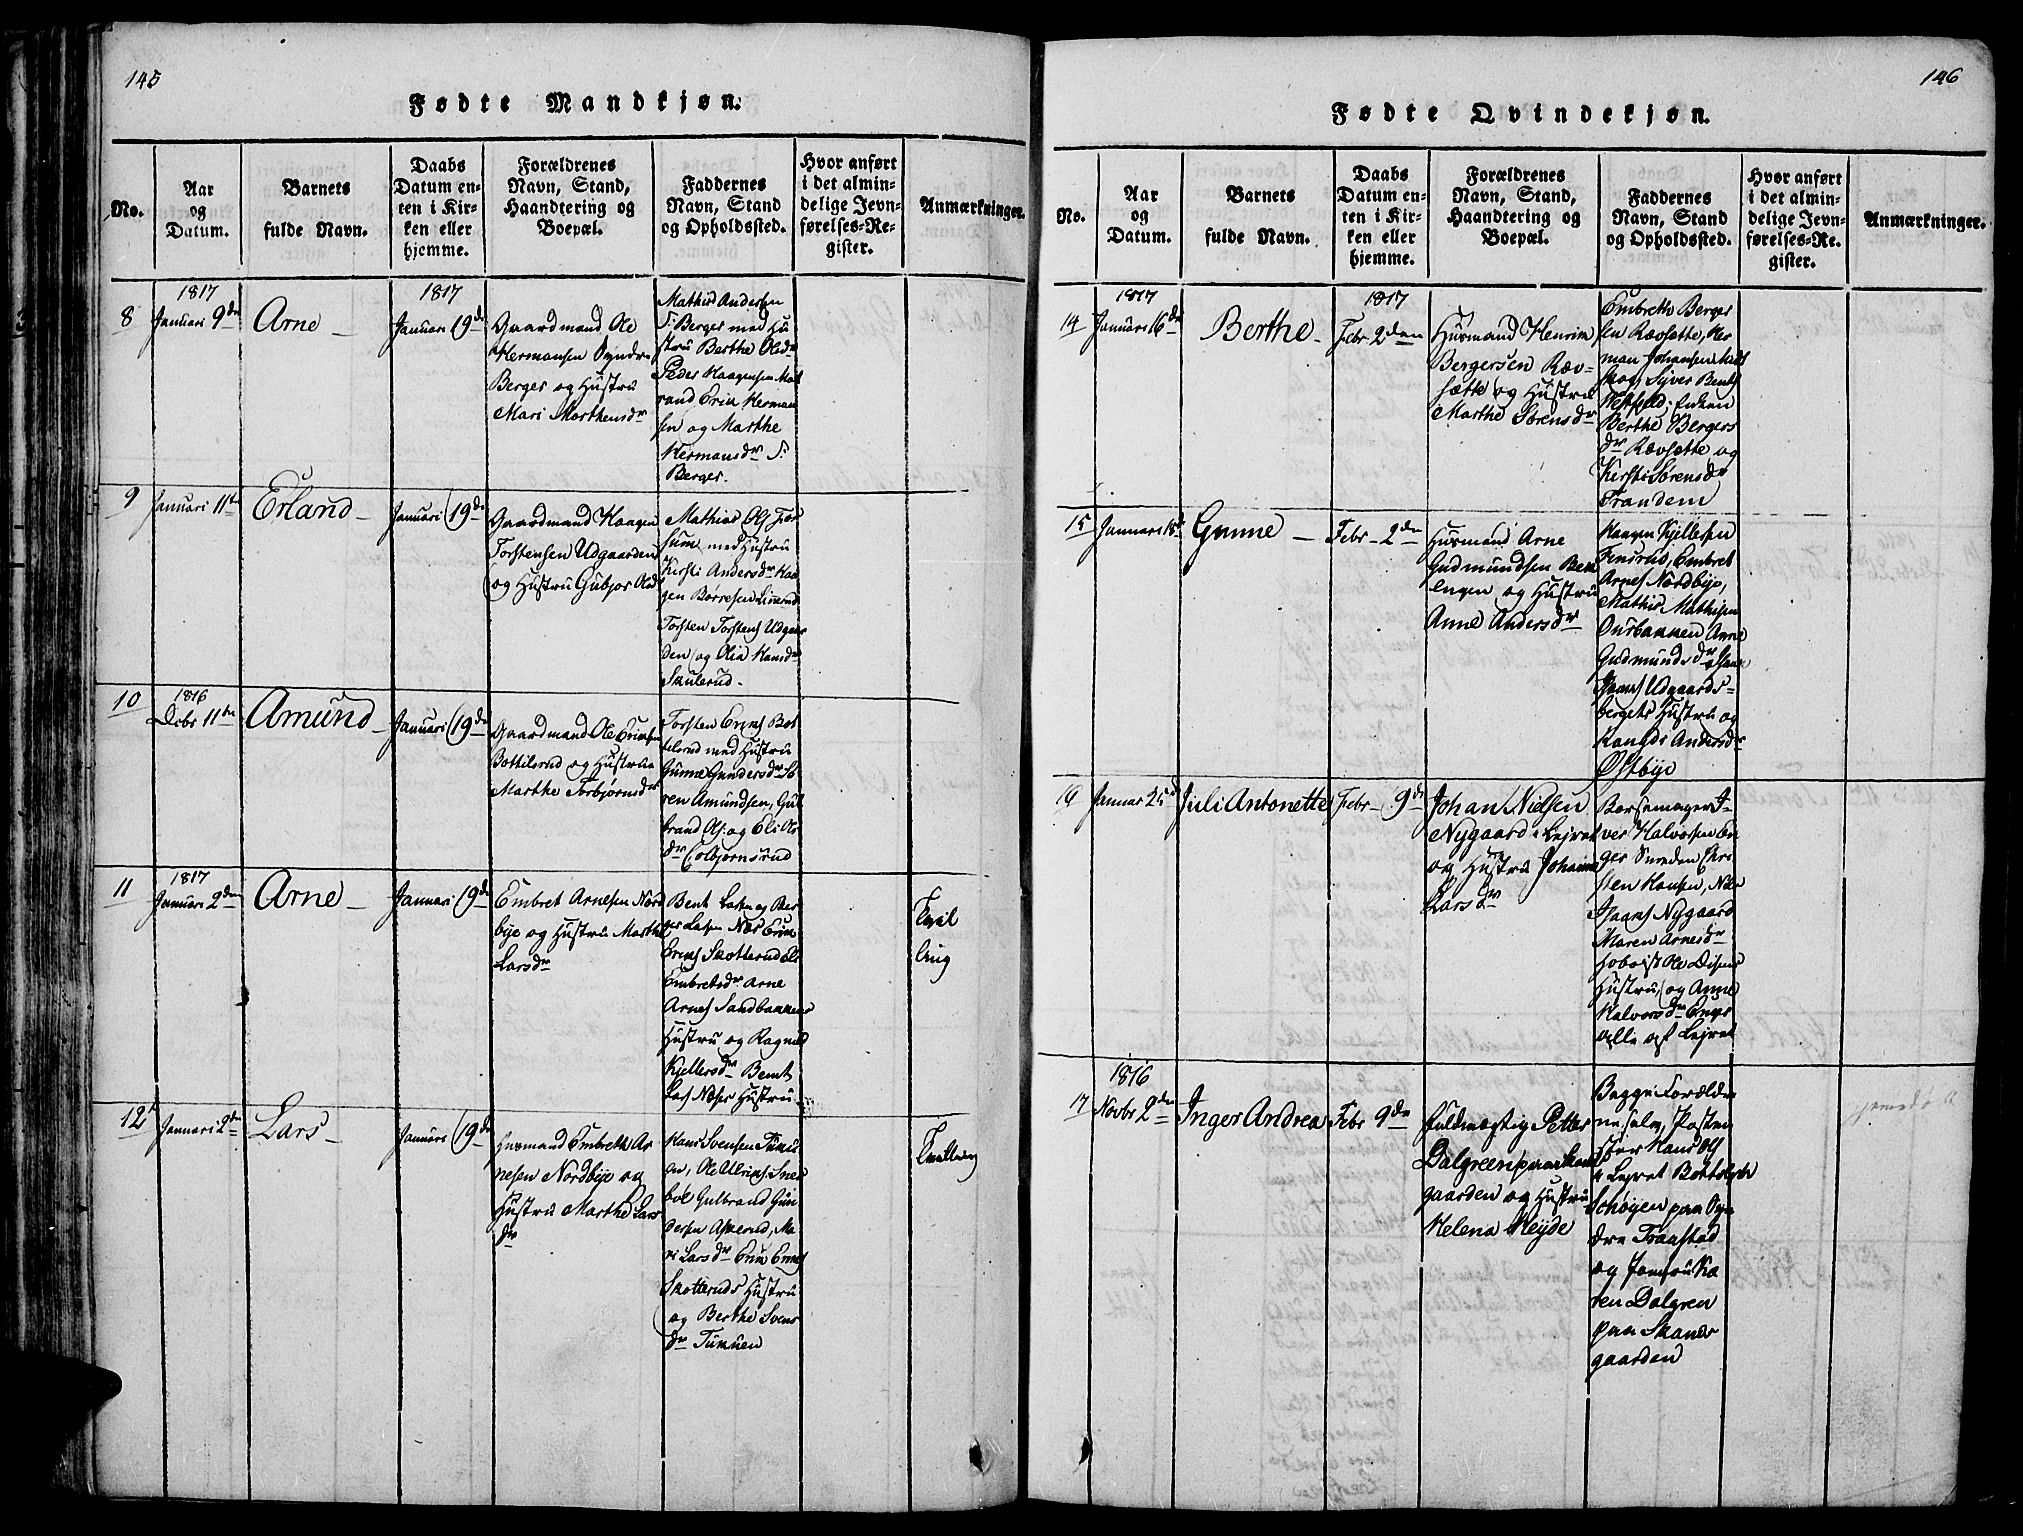 145
Fødte Mandkjøn.
No.
Aar
og
Datum.
Barnets
fulde Navn.
Daabs
Datum en-
ten i Kir-
ken eller
hjemme.
Forældrenes
Navn, Stand,
Haandtering og
Boepæl.
Faddernes
Navn, Stand
og Opholdssted.
Hvor anført
i det almin-
delige Jevn-
førelses-Re-
gister.
Anmærkninger.
8
1817
Januari 9de
Arne
1817
Januari 19de
Gaardmand Ole
Hermansen Syndre
Berger og Hustru
Mari Marthensdr
Mathis Andersen
S. Berger med Hu
stru Berthe Olsdr
Peder Haagensen Mat
rand Erik Herman
sen og Marthe
Hermansdr S.
Berger.
9
Januari 11te
Erland
Januari 19de
Gaardmand Haagen
Torstensen Udgaarden
og Hustru Gubjør Olsdr
Mathias Ols For
sum med Hustru
Kirsti Andersdr Haa
gen Borresen Linnerud
Torsten Torstens Udgaar
den og Olia Hansdr
Skulerud.
10
1816
Decbr 11te
Amund
Januari 19de
Gaardmand Ole Eriksen
Bottilsrud og Hustrue
Marthe Torbjørnsdr
Torsten Eriks Bot
tilsrud med Hustru
Gunne Gundersdr So
ren Amundsen, Gul
brand Ols. og Eli Ols
dr Colbjørnsrud
11
1817
Januari 2den
Arne
Januari 19de
Embret Arnesen Nord
bye og Hustru Marthe
Larsdr
Bent Larsen og Ber
ger Larsen Næs Erik
Eriks Skotterud Eli
Embretsdr Arne
Arnes Sandbakkens
Hustru og Ragnild
Kjellersdr Bent
Lars Næses Hustru
Tvil
ling
12
Januari 2den
Lars
Januari 19de
Husmand Embreth Ar
nesen Nordbye og
Hustru Marthe Lars
dr
Hans Svensen Tukku
en, Ole Ulriks Snee
bøl Gulbrand Gun
dersen Askerud, Ma
ri Larsdr Erik Eriks
Skotteruds Hustru
og Berthe Svens
dr Tukuen
Tvilling
146
Fødte Qvindekjøn.
No.
Aar
og
Datum.
Barnets
fulde Navn.
Daabs
Datum en-
ten i Kir-
ken eller
hjemme.
Forældrenes
Navn, Stand,
Haandtering og
Boepæl.
Faddernes
Navn, Stand
og Opholdssted.
Hvor anført
i det almin-
delige Jevn-
førelses-Re-
gister.
Anmærkninger.
14
1817
Januari 16de
Berthe
1817
Febr 2den
Husmand Henrik
Bergersen Ræv-
sætte og Hustru
Marthe Sørensdr
Embreth Berger
sen Rævsette, Her
man Johansen Mid
skog, Syver Bents
Enken
Berthe Bergers
dr Rævsette og
Kirsti Sørensdr
Trandem
15
Januari 18de
Gunne
Febr 2den
Husmand Arne
Gudmundsen Bek
engen og Hustru
Anne Andersdr
Haagen Kjellesen
Fensrud, Embret
Arnes Nordbye,
Mathis Mathisen
Ousbakken Anne
Gudmundsdr Isaac
Isaacs Udgaards-
bergets Hustru og
Randi Andersdr
Østbye
16
Januar 25de
Juli Antonette
Febr 9de
Johan Nielsen
Nygaard i Lejret
og Hustru Johanne
Larsdr
Børsemager I-
ver Halvorsen En
ger Smeden Chri
sten Hansen, Niels
Isaacs Nygaard
Maren Arnesdr
Hoboist Ole Disens
Hustru, og Anne
Halvorsdr Enger
alle af Lejret
17
1816
Novbr 2den
Inger Andrea
Febr 9de
Fuldmægtig Petter
Dalgreen paa Skans
gaarden og Hustru
Helena Heyde
Begge Forældre
ne selv, Postme
ster Hans Ols
i Lejret
Schøyen paa Syn
dre Traastad
og Jomfru Ka
ren Dalgren
paa Skands
gaarden